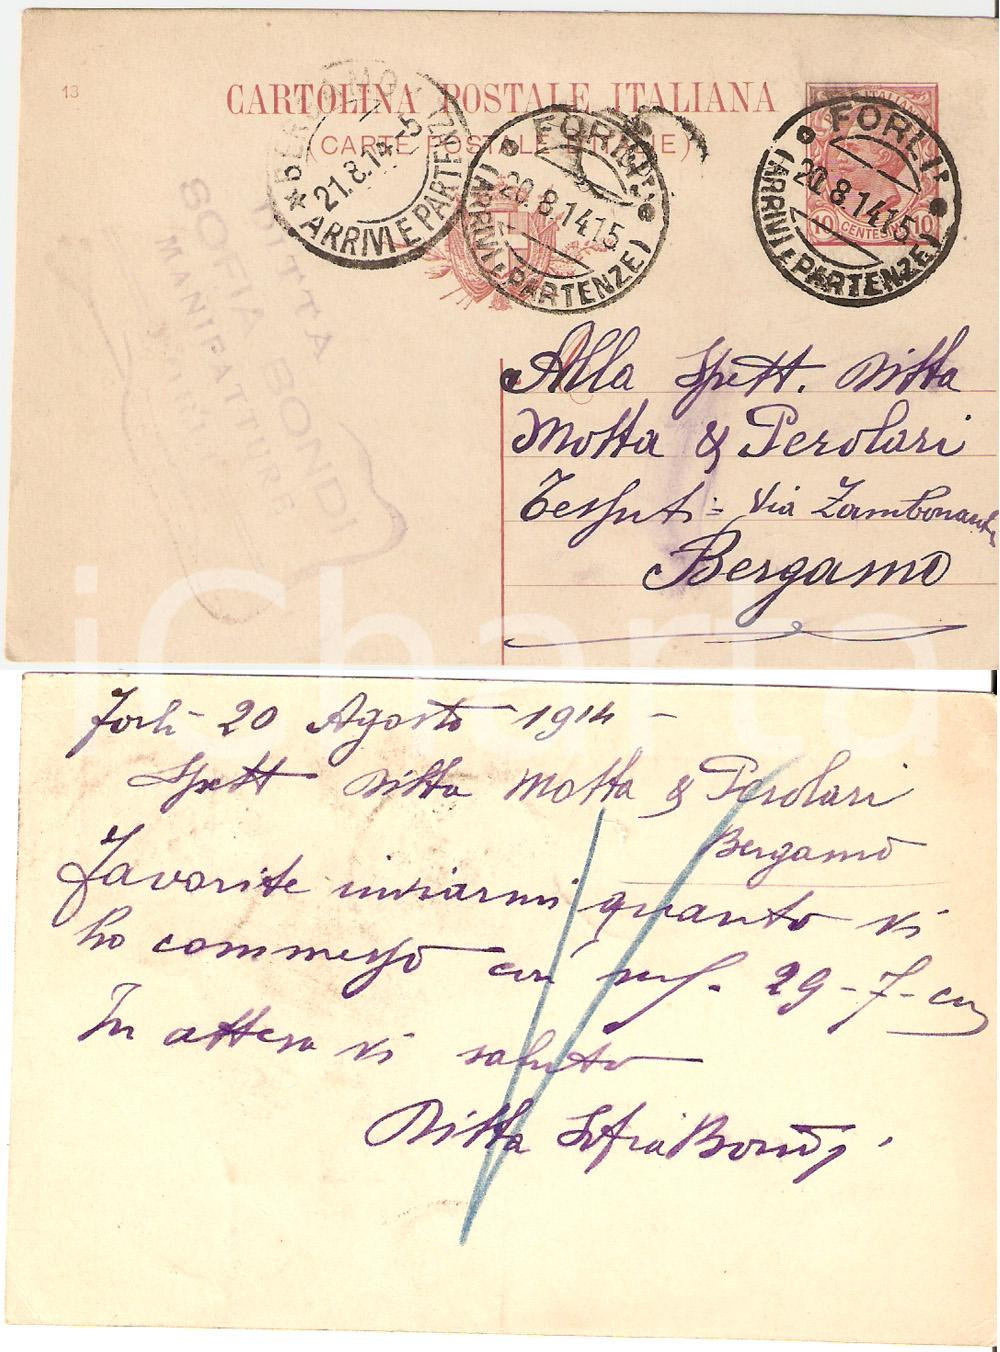 13
CARTOLINA POSTALE ITALIANA
(CARTE POSTALE ITALIENNE)
BERGAMO
21.8.14-5
ARRIVI E PARTENZE
FORLI
20.8.14 15
(ARRIVI E PARTENZE)
FORLI
20.8.14 15
(ARRIVI E PARTENZE)
10 CENTESIMI 10
DITTA
SOFIA BONDI
MANIFATTURE
FORLI
Alla Spett. Ditta
Motta & Perolari
Tessuti = Via Zambonate
Bergamo
iCharta
Forlì - 20 Agosto 1914 -
Spett Ditta Motta & Perolari
Bergamo
Favorite inviarmi quanto vi
ho commesso con 29-7-
In attesa vi saluto
Ditta Sofia Bondi